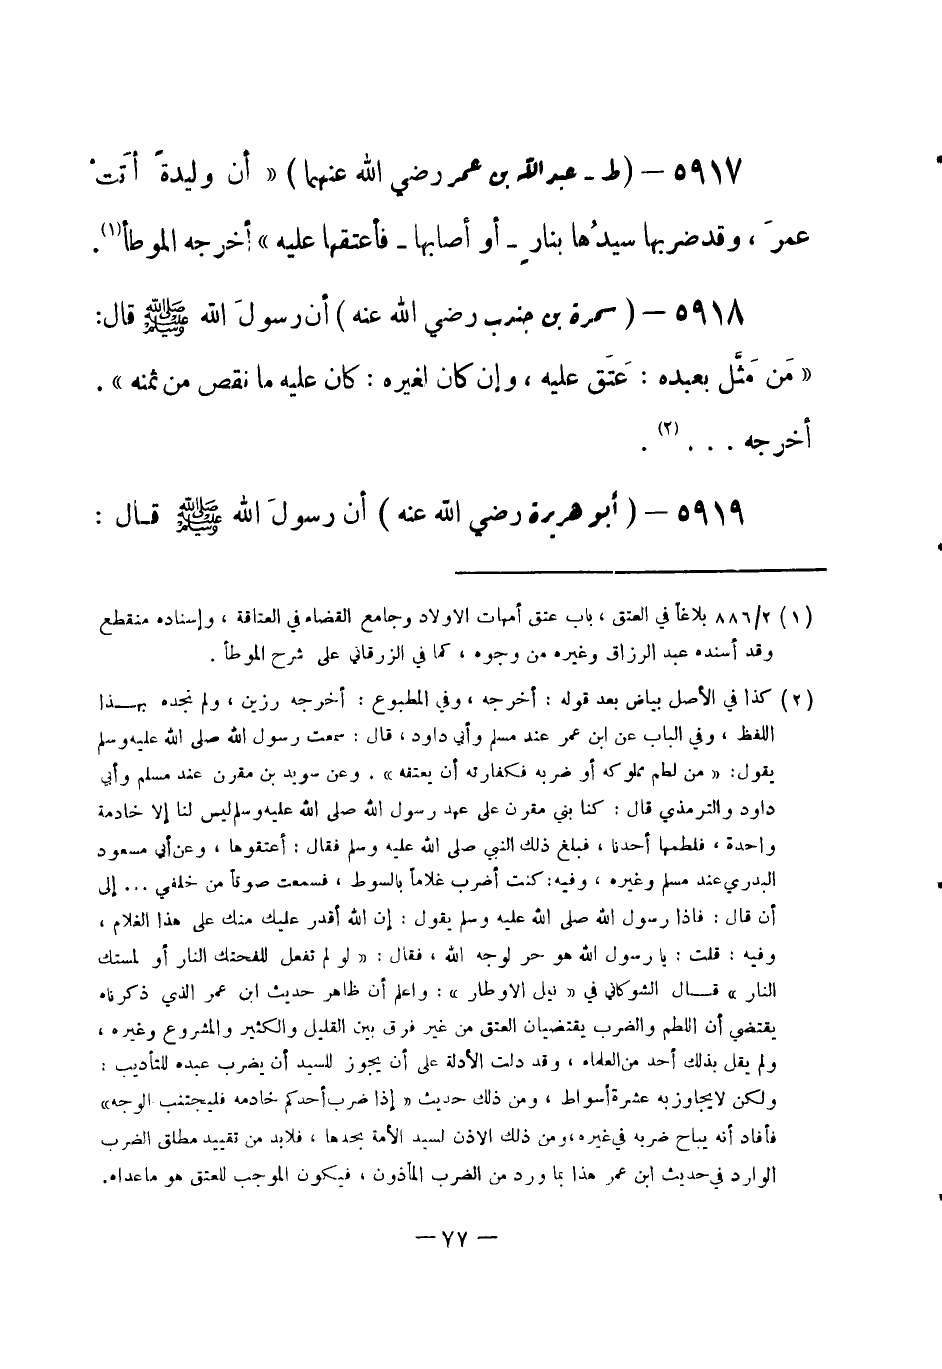 ٥٩١٧ – (ط ـ عبد الله بن عمر رضي الله عنهما) « أن وليدةً أتَتْ
عمرَ ، وقد ضربها سيدُها بنارٍ ـ أو أصابها ـ فأعتقها عليه » أخرجه الموطأ(١).
٥٩١٨ – ( سمرة بن جندب رضي الله عنه ) أن رسولَ الله ﷺ قال:
« مَن مَثَّل بعبده : عَتَق عليه ، وإن كان لغيره : كان عليه ما نقص من ثمنه » .
أخرجه . . . (٢) .
٥٩١٩ – ( أبو هريرة رضي الله عنه ) أن رسولَ الله ﷺ قـال :
(١) ٨٨٦/٢ بلاغاً في العتق ، باب عتق أمهات الاولاد وجامع القضاء في العتاقة ، وإسناده منقطع
وقد أسنده عبد الرزاق وغيره من وجوه ، كما في الزرقاني على شرح الموطأ .
(٢) كذا في الأصل بياض بعد قوله : أخرجه ، وفي المطبوع : أخرجه رزين ، ولم نجده بهـــذا
اللفظ ، وفي الباب عن ابن عمر عند مسلم وأبي داود ، قال : سمعت رسول الله صلى الله عليه وسلم
يقول: « من لطم مملوكه أو ضربه فكفارته أن يعتقه » . وعن سويد بن مقرن عند مسلم وأبي
داود والترمذي قال : كنا بني مقرن على عهد رسول الله صلى الله عليه وسلم ليس لنا إلا خادمة
واحدة ، فلطمها أحدنا ، فبلغ ذلك النبي صلى الله عليه وسلم فقال : أعتقوها ، وعن أبي مسعود
البدري عند مسلم وغيره ، وفيه: كنت أضرب غلاماً بالسوط ، فسمعت صوتاً من خلفي ... إلى
أن قال : فاذا رسول الله صلى الله عليه وسلم يقول : إن الله أقدر عليك منك على هذا الغلام ،
وفيه : قلت : يا رسول الله هو حر لوجه الله ، فقال : « لو لم تفعل للفحتك النار أو لمستك
النار » قـــال الشوكاني في « نيل الاوطار » : واعلم أن ظاهر حديث ابن عمر الذي ذكرناه
يقتضي أن اللطم والضرب يقتضيان العتق من غير فرق بين القليل والكثير والمشروع وغيره ،
ولم يقل بذلك أحد من العلماء ، وقد دلت الأدلة على أن يجوز للسيد أن يضرب عبده للتأديب :
ولكن لا يجاوز به عشرة أسواط ، ومن ذلك حديث « إذا ضرب أحدكم خادمه فليجتنب الوجه»
فأفاد أنه يباح ضربه في غيره،ومن ذلك الاذن لسيد الأمة بحدها ، فلابد من تقييد مطلق الضرب
الوارد في حديث ابن عمر هذا بما ورد من الضرب المأذون ، فيكون الموجب للعتق هو ما عداه.
– ٧٧ –